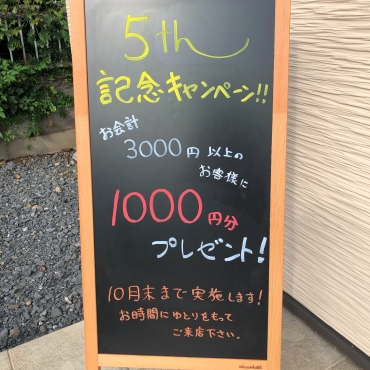 5th
記念キャンペーン!!
お会計
3000円以上の
お客様に
1000円分
プレゼント!
10月末まで実施します!
お時間にゆとりをもって
ご来店下さい。